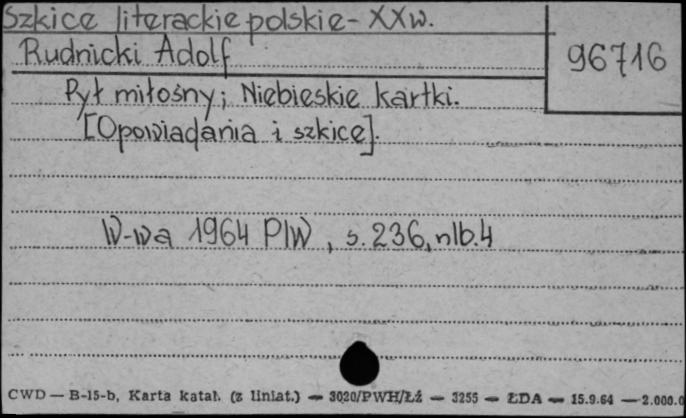 Szkice literackie polskie - XX w.
Rudnicki Adolf
96716
Pył miłosny; Niebieskie kartki.
[Opowiadania i szkice].
W-wa 1964 PIW, s. 236, nlb. 4
CWD — B-15-b, Karta katal. (z liniat.) — 3020/PWH/Łź — 3255 — ŁDA — 15.9.64 — 2.000.0